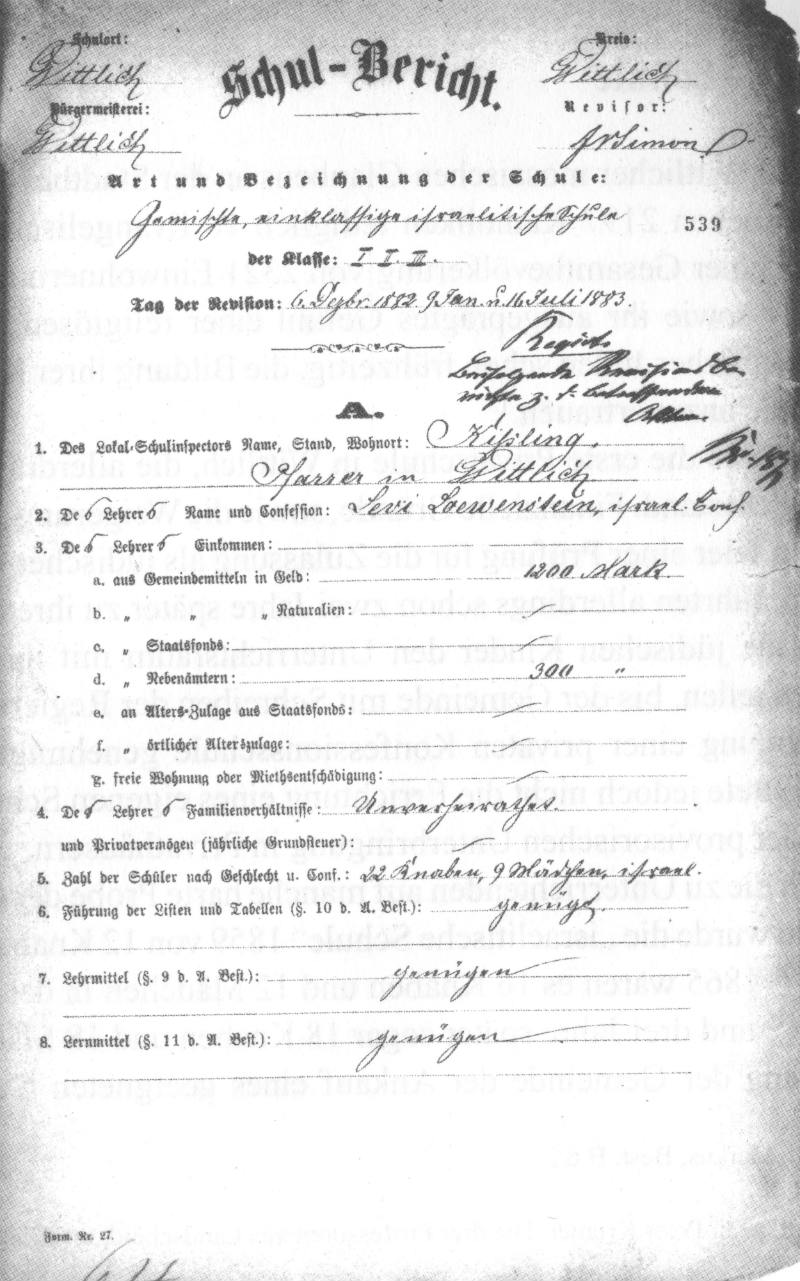 Schulort:
Wittlich
Bürgermeisterei:
Wittlich
Schul-Bericht.
Kreis:
Wittlich
Revisor:
Simon
Art und Bezeichnung der Schule:
Gemischte, einklassige israelitische Schule
539
der Klasse: I II III.
Tag der Revision: 6. Dezbr. 1882. 9 Jan. u. 16 Juli 1883.
A.
1. Des Lokal-Schulinspectors Name, Stand, Wohnort: Kißling.
Pfarrer in Wittlich
2. Des Lehrers Name und Confession: Levi Loewenstein, israel. Conf.
3. Des Lehrers Einkommen:
a. aus Gemeindemitteln in Geld: 1200 Mark
b. „ „ „ Naturalien:
c. „ Staatsfonds:
d. „ Nebenämtern: 300 „
e. an Alters-Zulage aus Staatsfonds:
f. örtlicher Alterszulage:
g. freie Wohnung oder Miethsentschädigung:
4. Des Lehrers Familienverhältnisse: Unverheirathet.
und Privatvermögen (jährliche Grundsteuer):
5. Zahl der Schüler nach Geschlecht u. Conf.: 22 Knaben, 9 Mädchen, israel.
6. Führung der Listen und Tabellen (§. 10 d. A. Best.): genügt.
7. Lehrmittel (§. 9 d. A. Best.): genügen
8. Lernmittel (§. 11 d. A. Best.): genügen
Form. Nr. 27.